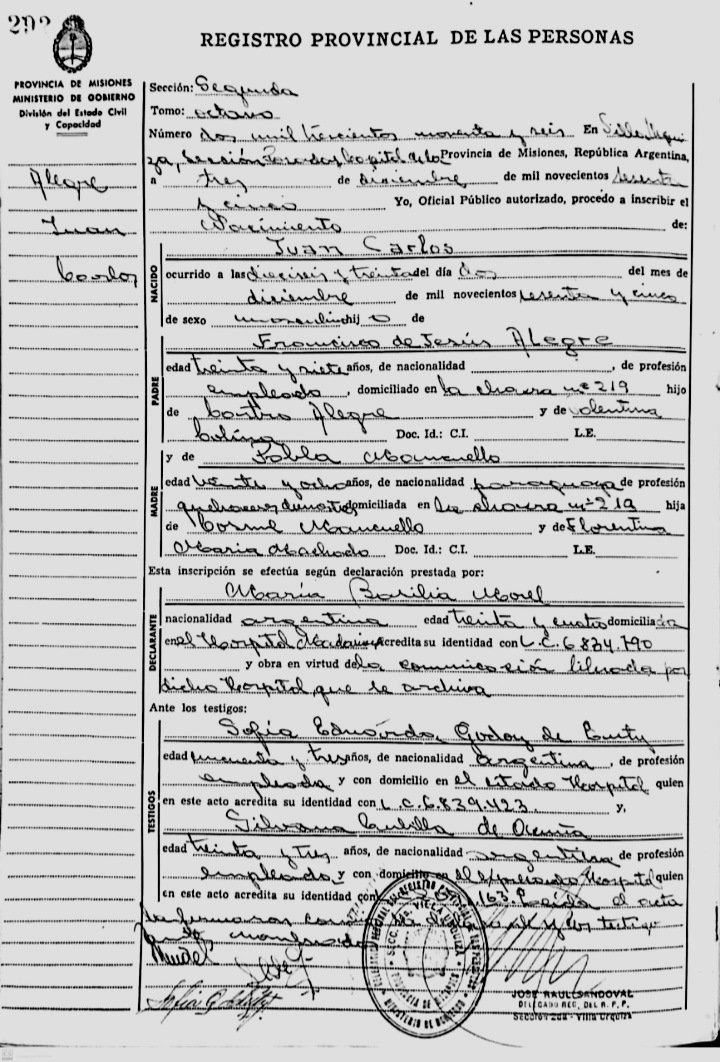 292
REGISTRO PROVINCIAL DE LAS PERSONAS
PROVINCIA DE MISIONES
MINISTERIO DE GOBIERNO
División del Estado Civil
y Capacidad
Alegre
Juan
Carlos
Sección: Segunda
Tomo: octavo
Número dos mil trescientos noventa y seis En Villa Urqui
za, Sección Posadas, Capital de la Provincia de Misiones, República Argentina,
a tres de diciembre de mil novecientos sesenta
y cinco Yo, Oficial Público autorizado, procedo a inscribir el
Nacimiento de:
NACIDO
Juan Carlos
ocurrido a las dieciseis y treinta del día dos del mes de
diciembre de mil novecientos sesenta y cinco
de sexo masculino hij o de
PADRE
Francisco de Jesús Alegre
edad treinta y siete años, de nacionalidad , de profesión
empleado , domiciliado en la chacra nº 219 hijo
de Alegre y de Valentina
Doc. Id.: C.I. L.E.
MADRE
y de Pabla Mancuello
edad veinte y ocho años, de nacionalidad paraguaya de profesión
quehaceres domiciliada en la chacra nº 219 hija
de Mancuello y de Florentina
Maria Machado Doc. Id.: C.I. L.E.
Esta inscripción se efectúa según declaración prestada por:
DECLARANTE
María Basilia Morel
nacionalidad argentina edad treinta y cuatro domiciliada
en el Hospital Madariaga Acredita su identidad con L.C. 6.834.790
y obra en virtud de la comunicación librada por
dicho Hospital, que se archiva
Ante los testigos:
TESTIGOS
Sofía Eduarda Godoy de
edad cincuenta y tres años, de nacionalidad argentina , de profesión
empleada y con domicilio en el citado Hospital quien
en este acto acredita su identidad con L.C. 6.839.423. y,
Silvana de
edad treinta y tres años, de nacionalidad argentina de profesión
empleada y con domicilio en el expresado Hospital quien
en este acto acredita su identidad con 163. Leída el acta
la firmaron y los testigos
JOSE RAUL SANDOVAL
DELEGADO REG. DEL R. P. P.
Sección 2da - Villa Urquiza